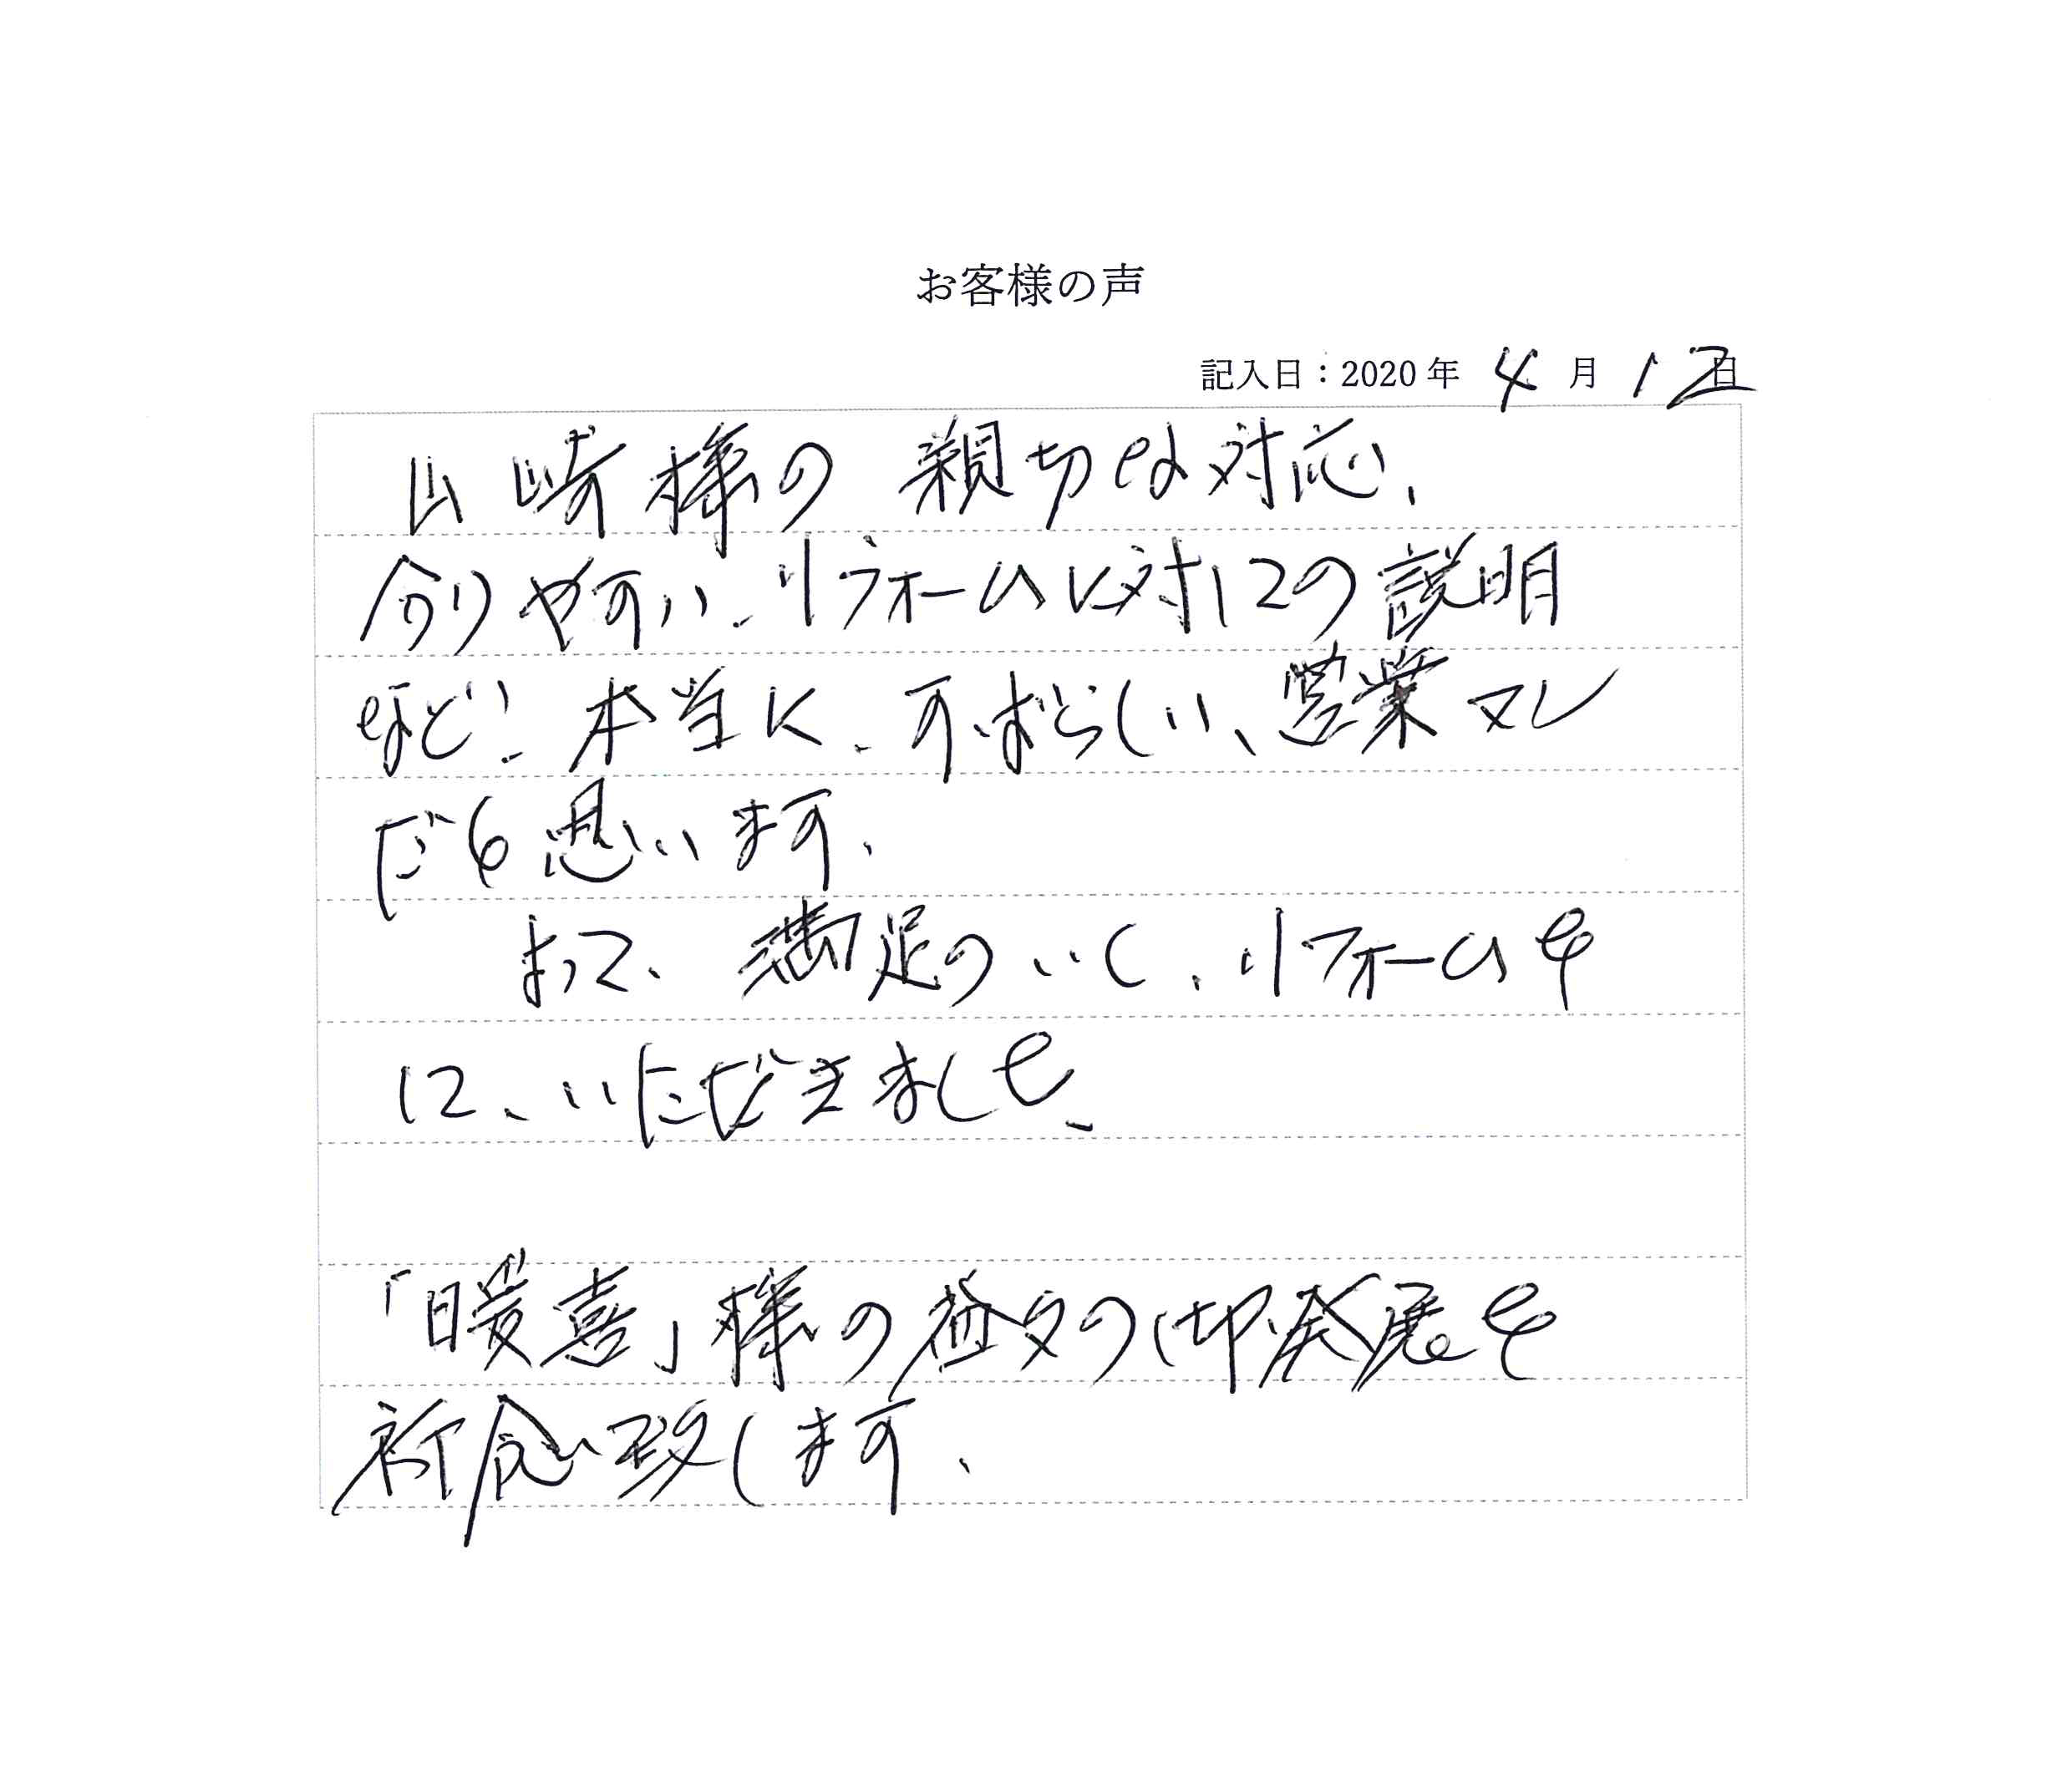 お客様の声
記入日：2020年 4月 12日
山崎様の 親切な対応、
分りやすい、リフォームに対しての説明
など、本当に、すばらしい、営業マン
だと思います、
よって、満足のいく、リフォームを
して、いただきました、
「暖喜」様の益々の御発展を
祈念致します、